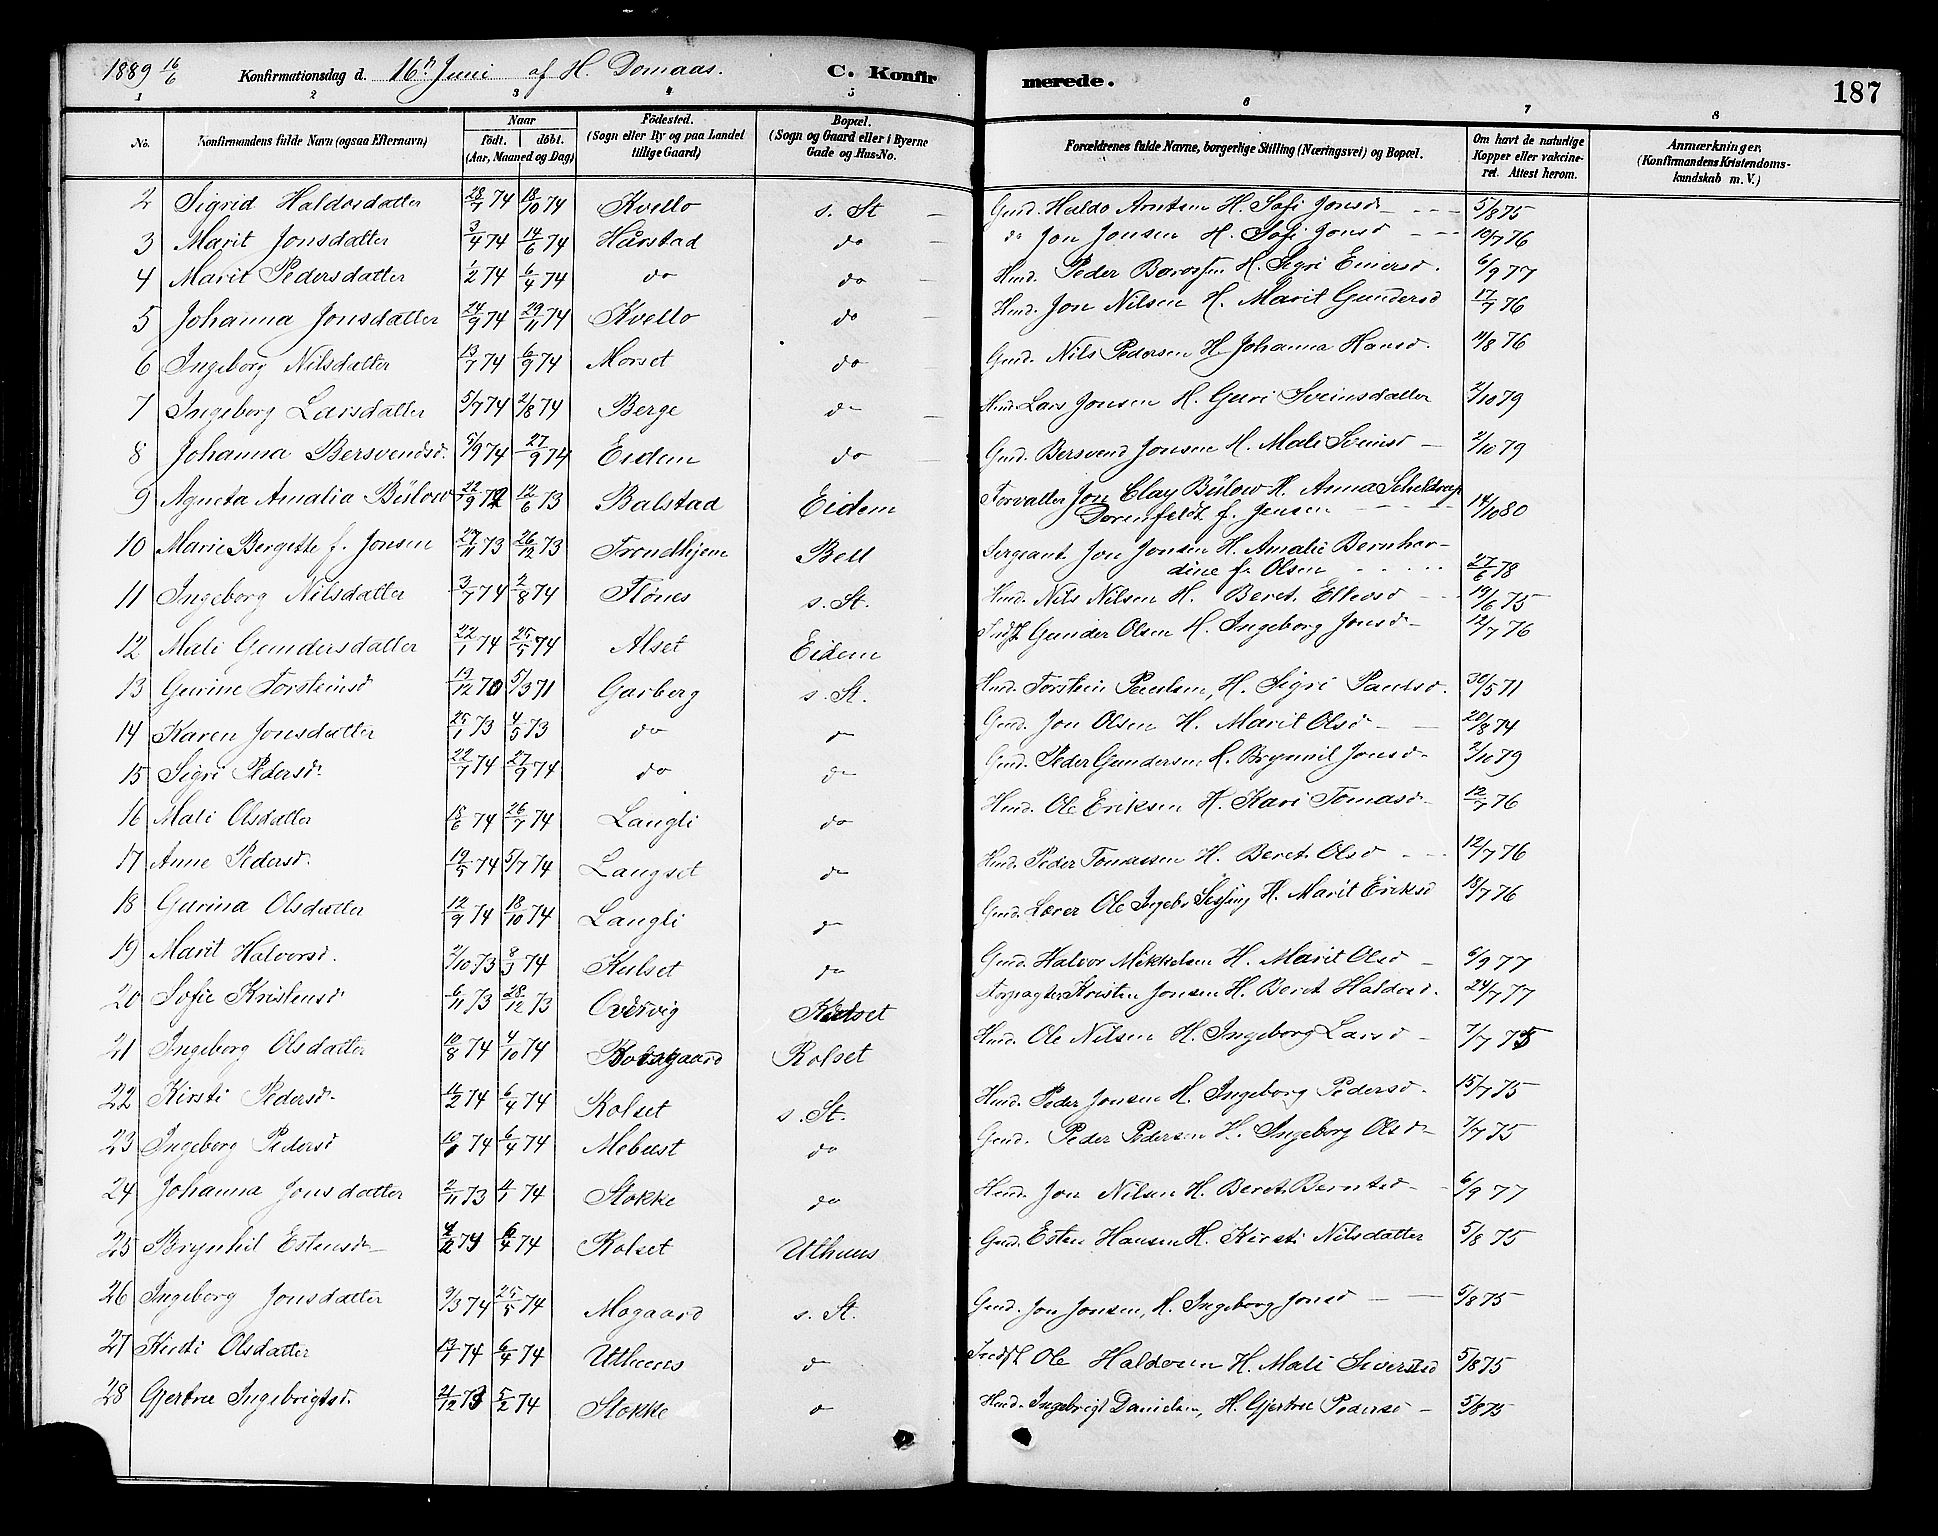 1889 16/6 Konfirmationsdag d. 16n Juni af H. Domaas. C. Konfirmerede. 187
1 2 3 4 5 6 7 8
No. Konfirmandens fulde Navn (ogsaa Efternavn) Naar födt. döbt. (Aar, Maaned og Dag) Födested. (Sogn eller By og paa Landet tillige Gaard) Bopæl. (Sogn og Gaard eller i Byerne Gade og Hus-No. Forældrenes fulde Navne, borgerlige Stilling (Næringsvei) og Bopæl. Om havt de naturlige Kopper eller vakcineret. Attest herom. Anmærkninger. (Konfirmandens Kristendomskundskab m. V.)
2 Sigrid Haldosdatter 28/7 74 18/10 74 Kvello s. St. Gmd. Haldo Arntsen H. Sofi Jonsd 5/8 75
3 Marit Jonsdatter 3/4 74 14/6 74 Hårstad do do Jon Jonsen H. Sofi Jonsd 10/7 76
4 Marit Pedersdatter 1/2 74 6/4 74 do do Hmd. Peder H. Sigri Einersd. 6/9 77
5 Johanna Jonsdatter 24/9 74 29/11 74 Kvello do Hmd. Jon Nilsen H. Marit Gundersd 17/7 76
6 Ingeborg Nilsdatter 13/7 74 6/9 74 Morset do Gmd. Nils Pedersen H. Johanna Hansd. 11/8 76
7 Ingeborg Larsdatter 5/7 74 2/8 74 Berge do Hmd. Lars Jonsen H. Guri Sveinsdatter 2/10 79
8 Johanna Bersvendsd. 5/9 74 27/9 74 Eidem do Gmd. Bersvend Jonsen H. Mali Sveinsd 2/10 79
9 Agneta Amalia Bülow 22/9 72 12/6 73 Balstad Eidem Forvalter Jon Clay Bülow H. Anna Scheldrup
Dorenfeldt f. Jensen 14/10 80
10 Marie Bergette f. Jonsen 27/11 73 26/12 73 Trondhjem Bell Sergeant Jon Jonsen H. Amalie Bernhar-
dine f. Olsen 27/6 78
11 Ingeborg Nilsdatter 3/7 74 2/8 74 Flönes s. St. Hmd. Nils Nilsen H. Beret Ellevsd 19/6 75
12 Mali Gundersdatter 22/1 74 25/5 74 Alset Eidem Indst Gunder Olsen H. Ingeborg Jonsd 12/7 76
13 Gurine Torsteinsd 19/12 70 5/3 71 Garberg s. St. Hmd. Torstein Paulsen, H. Sigri Paulsd. 30/5 71
14 Karen Jonsdatter 25/1 73 4/5 73 do do Gmd. Jon Olsen H. Marit Olsd 20/8 74
15 Sigri Pedersd 22/7 74 27/9 74 do do Gmd. Peder Gundersen H. Brynnil Jonsd 2/10 79
16 Mali Olsdatter 18/6 74 26/7 74 Langli do Hmd. Ole Eriksen H. Kari Tomasd 12/7 76
17 Anne Pedersd. 19/5 74 5/7 74 Langset do Hmd. Peder Tomassen H. Beret Olsd 12/7 76
18 Gurina Olsdatter 12/9 74 18/10 74 Langli do Gmd. Lærer Ole H. Marit Eriksd 18/7 76
19 Marit Halvorsd. 2/10 73 8/3 74 Kulset do Gmd. Halvor Mikkelsen H. Marit Olsd 6/9 77
20 Sofie Kristensd 6/11 73 28/12 73 Overvig Kulset Kristen Jonsen H. Beret Haldosd. 24/7 77
21 Ingeborg Olsdatter 10/8 74 4/10 74 Rolset Hmd. Ole Nilsen H. Ingeborg Larsd 7/7 75
22 Kirsti Pedersd 16/2 74 6/4 74 Rolset s. St. Hmd. Peder Jonsen H. Ingeborg Pedersd 15/7 75
23 Ingeborg Pedersd 10/1 74 6/4 74 Mebust do Gmd. Peder Pedersen H. Ingeborg Olsd 7/7 75
24 Johanna Jonsdatter 2/11 73 11/1 74 Stokke do Hmd. Jon Nilsen H. Beret Berntsd 6/9 77
25 Brynhil Estensd 74 6/4 74 Rolset Uthuus Gmd. Esten Hansen H. Kirsti Nilsdatter 5/8 75
26 Ingeborg Jonsdatter 9/3 74 25/5 74 Mogaard s. St. Gmd. Jon Jonsen, H. Ingeborg Jonsd 5/8 75
27 Kirsti Olsdatter 17/1 74 6/4 74 Uthuus do Indst Ole Haldosen H. Mali Siversd 5/8 75
28 Gjertru Ingebrigtsd. 21/12 73 5/2 74 Stokke do Hmd. Ingebrigt Danielsen, H. Gjertru Pedersd 5/8 75